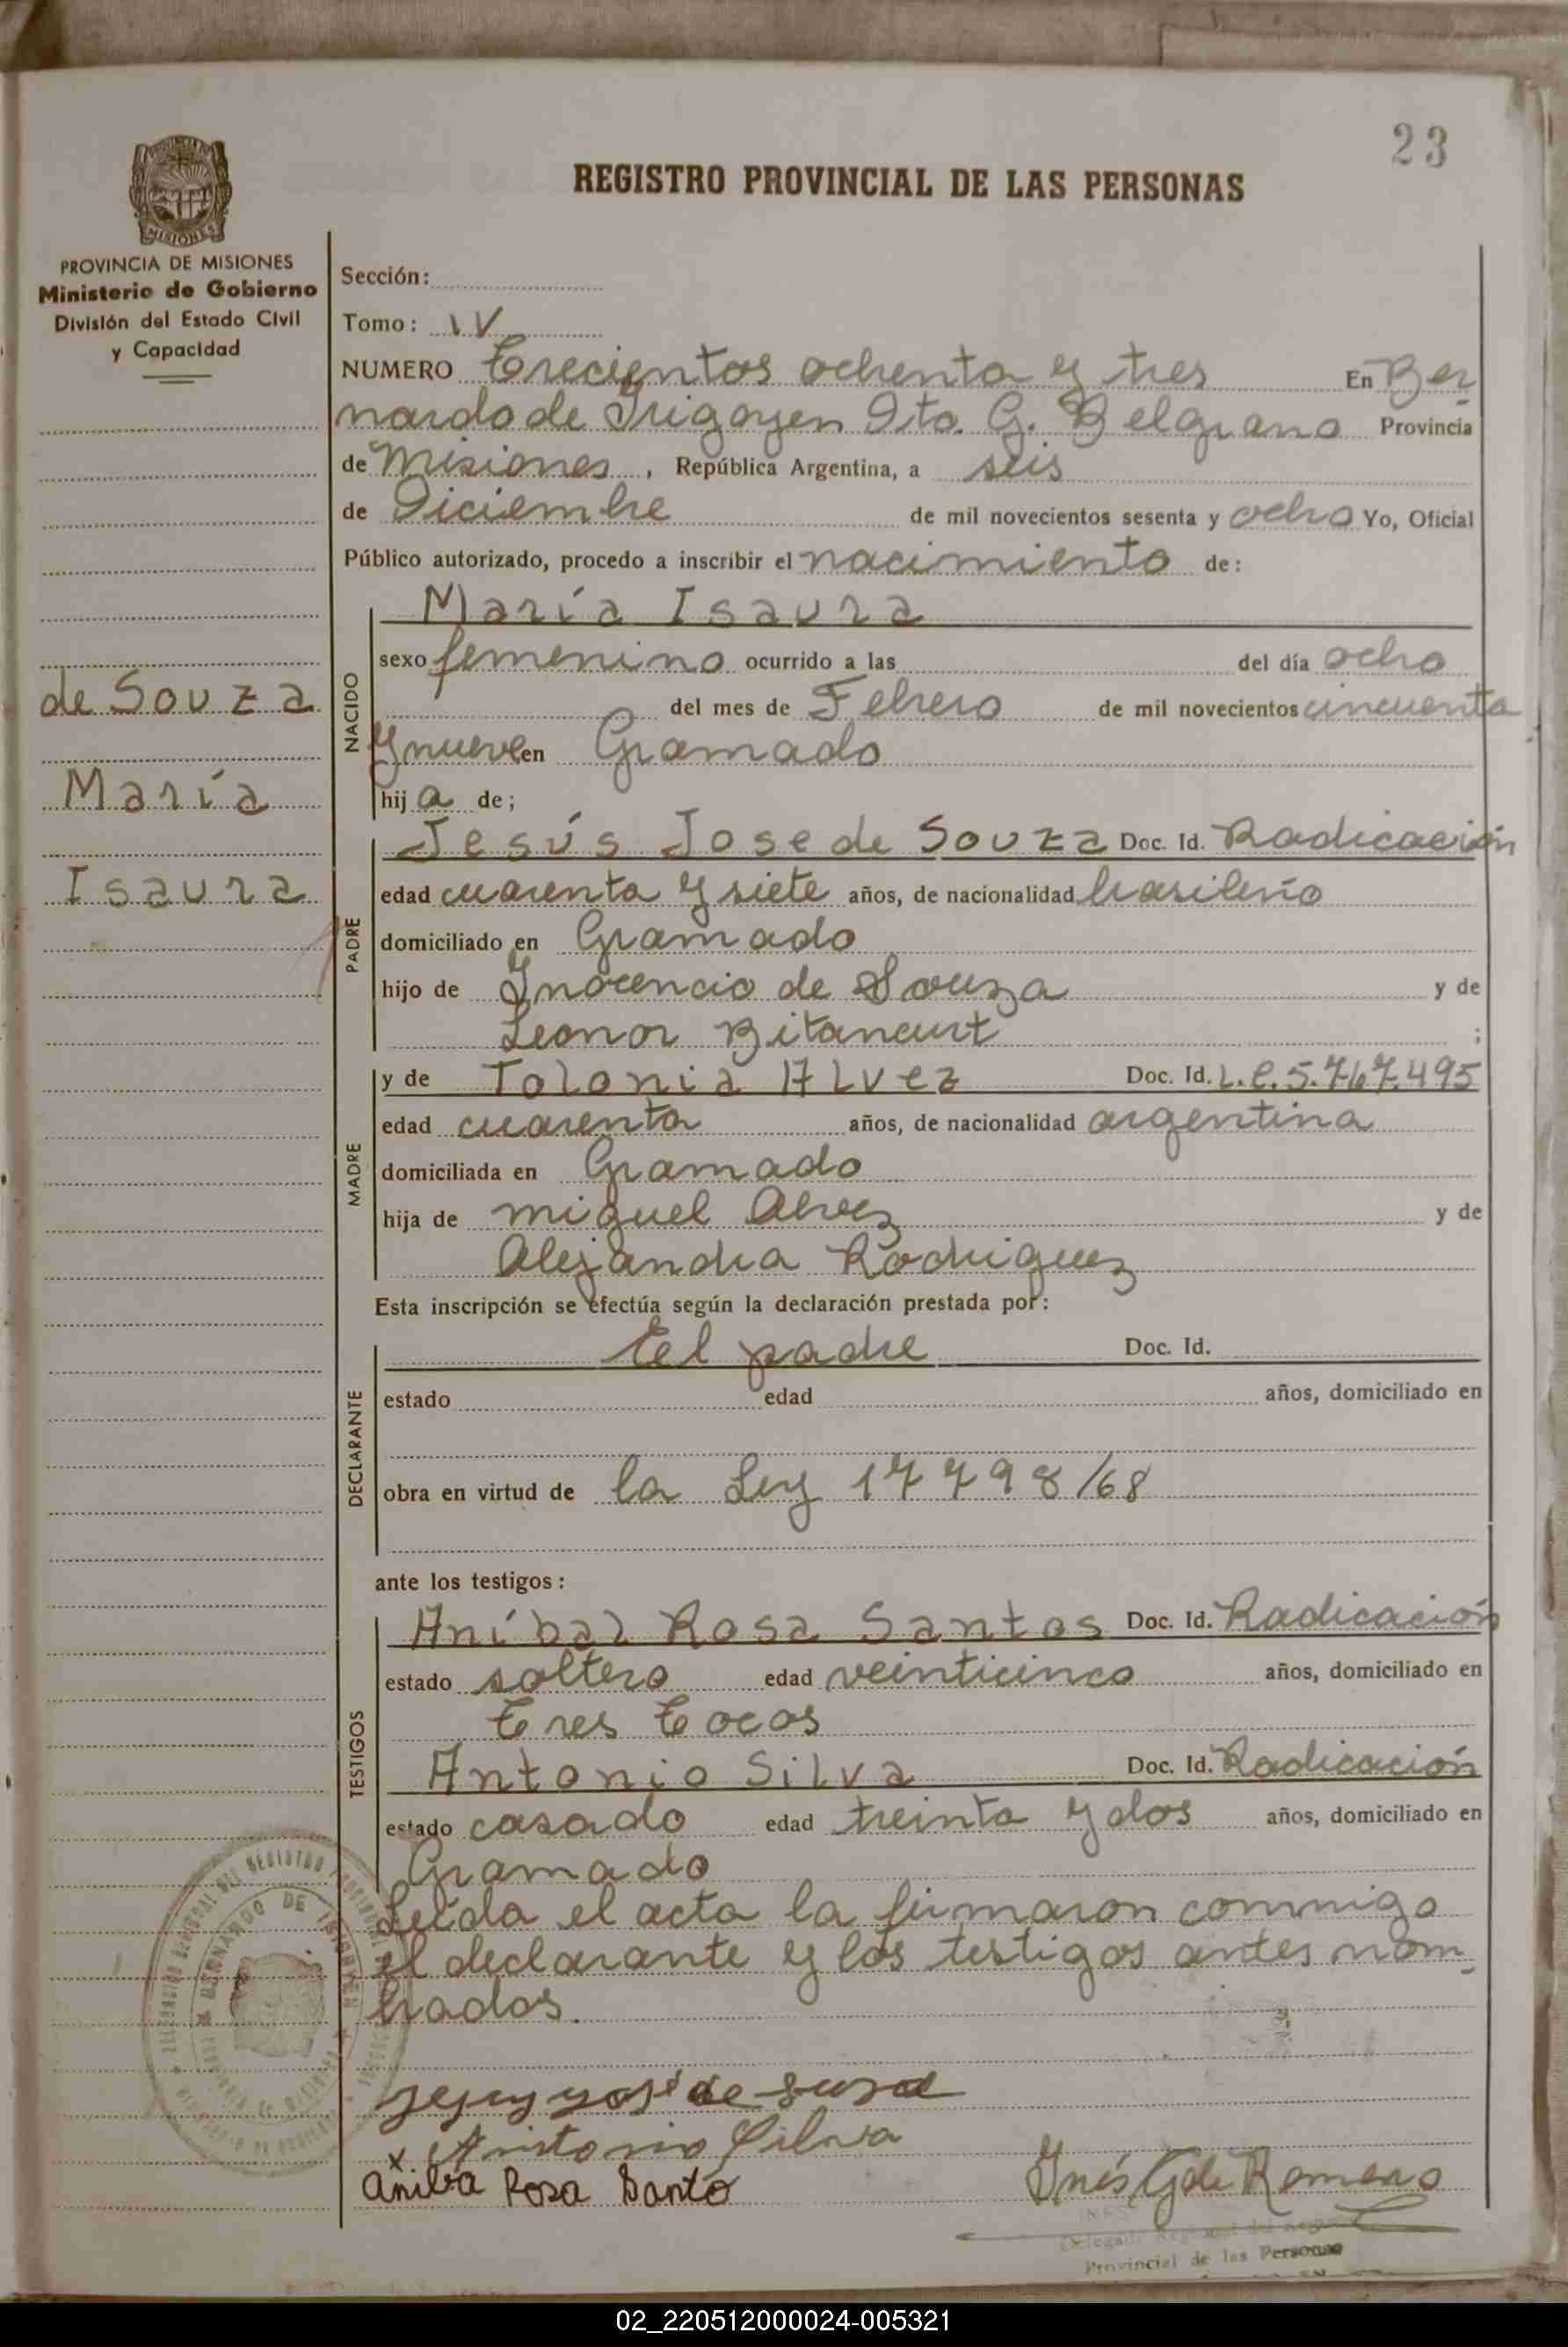 23
REGISTRO PROVINCIAL DE LAS PERSONAS
MISIONES
PROVINCIA DE MISIONES
Ministerio de Gobierno
División del Estado Civil
y Capacidad
de Souza
María
Isaura
Sección:
Tomo: IV
NUMERO Trecientos ochenta y tres En Ber
nardo de Irigoyen Dto. G. Belgrano Provincia
de Misiones, República Argentina, a seis
de Diciembre de mil novecientos sesenta y ocho Yo, Oficial
Público autorizado, procedo a inscribir el nacimiento de:
NACIDO
María Isaura
sexo femenino ocurrido a las del día ocho
del mes de Febrero de mil novecientos cincuenta
y nueve en Gramado
hij a de;
PADRE
Jesús Jose de Souza Doc. Id. Radicación
edad cuarenta y siete años, de nacionalidad brasileño
domiciliado en Gramado
hijo de Inocencio de Souza y de
Leonor Bitancurt ;
MADRE
y de Tolonia Alvez Doc. Id. L.C. 5.767.495
edad cuarenta años, de nacionalidad argentina
domiciliada en Gramado
hija de Miguel Alvez y de
Alejandra Rodriguez
Esta inscripción se efectúa según la declaración prestada por:
DECLARANTE
El padre Doc. Id.
estado edad años, domiciliado en
obra en virtud de la Ley 17798/68
ante los testigos:
TESTIGOS
Aníbal Rosa Santos Doc. Id. Radicación
estado soltero edad veinticinco años, domiciliado en
Tres Tocos
Antonio Silva Doc. Id. Radicación
estado casado edad treinta y dos años, domiciliado en
Gramado
Leída el acta la firmaron conmigo
el declarante y los testigos antes nom-
brados.
BERNARDO DE IRIGOYEN
x Antonio Silva
Aniba Rosa Santo
Inés G de Romero
Provincial de las Personas
02_220512000024-005321